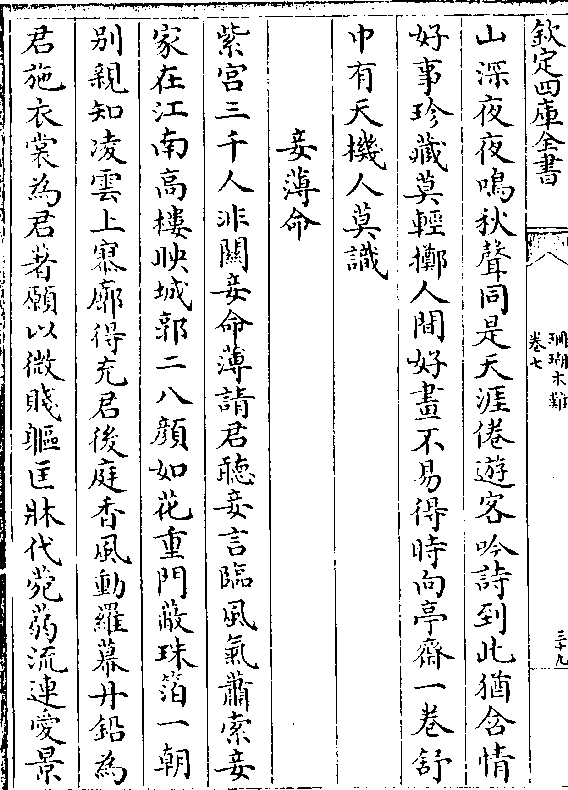 欽定四庫全書
珊瑚木難
卷七
三十九
山深夜夜鳴秋聲同是天涯倦遊客吟詩到此猶含情
好事珍藏莫輕擲人間好畫不易得時向亭齋一卷舒
巾有天機人莫識
妾薄命
紫宫三千人非關妾命薄請君聽妾言臨風氣蕭索妾
家在江南高樓映城郭二八顔如花重門蔽珠箔一朝
别親知凌雲上寥廓得充君後庭香風動羅幕丹鉛為
君施衣裳為君著願以微賤軀匡牀代菀蒻流連愛景